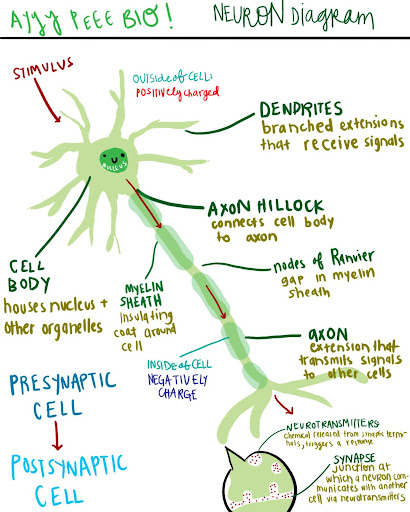 AYYY PEEE BIO!
NEURON Diagram
STIMULUS
OUTSIDE of CELL:
POSITIVELY CHARGED
DENDRITES
branched extensions
that receive signals
NUCLEUS
AXON HILLOCK
connects cell body
to axon
CELL
BODY
houses nucleus +
other organelles
MYELIN
SHEATH
insulating
coat around
cell
nodes of Ranvier
gap in myelin
sheath
INSIDE of CELL
NEGATIVELY
CHARGE
axon
extension that
transmits signals
to other cells
PRESYNAPTIC
CELL
POSTSYNAPTIC
CELL
NEUROTRANSMITTERS
chemical released from synaptic termi-
nals, triggers a response
SYNAPSE
junction at
which a neuron com-
municates with another
cell via neurotransmitters